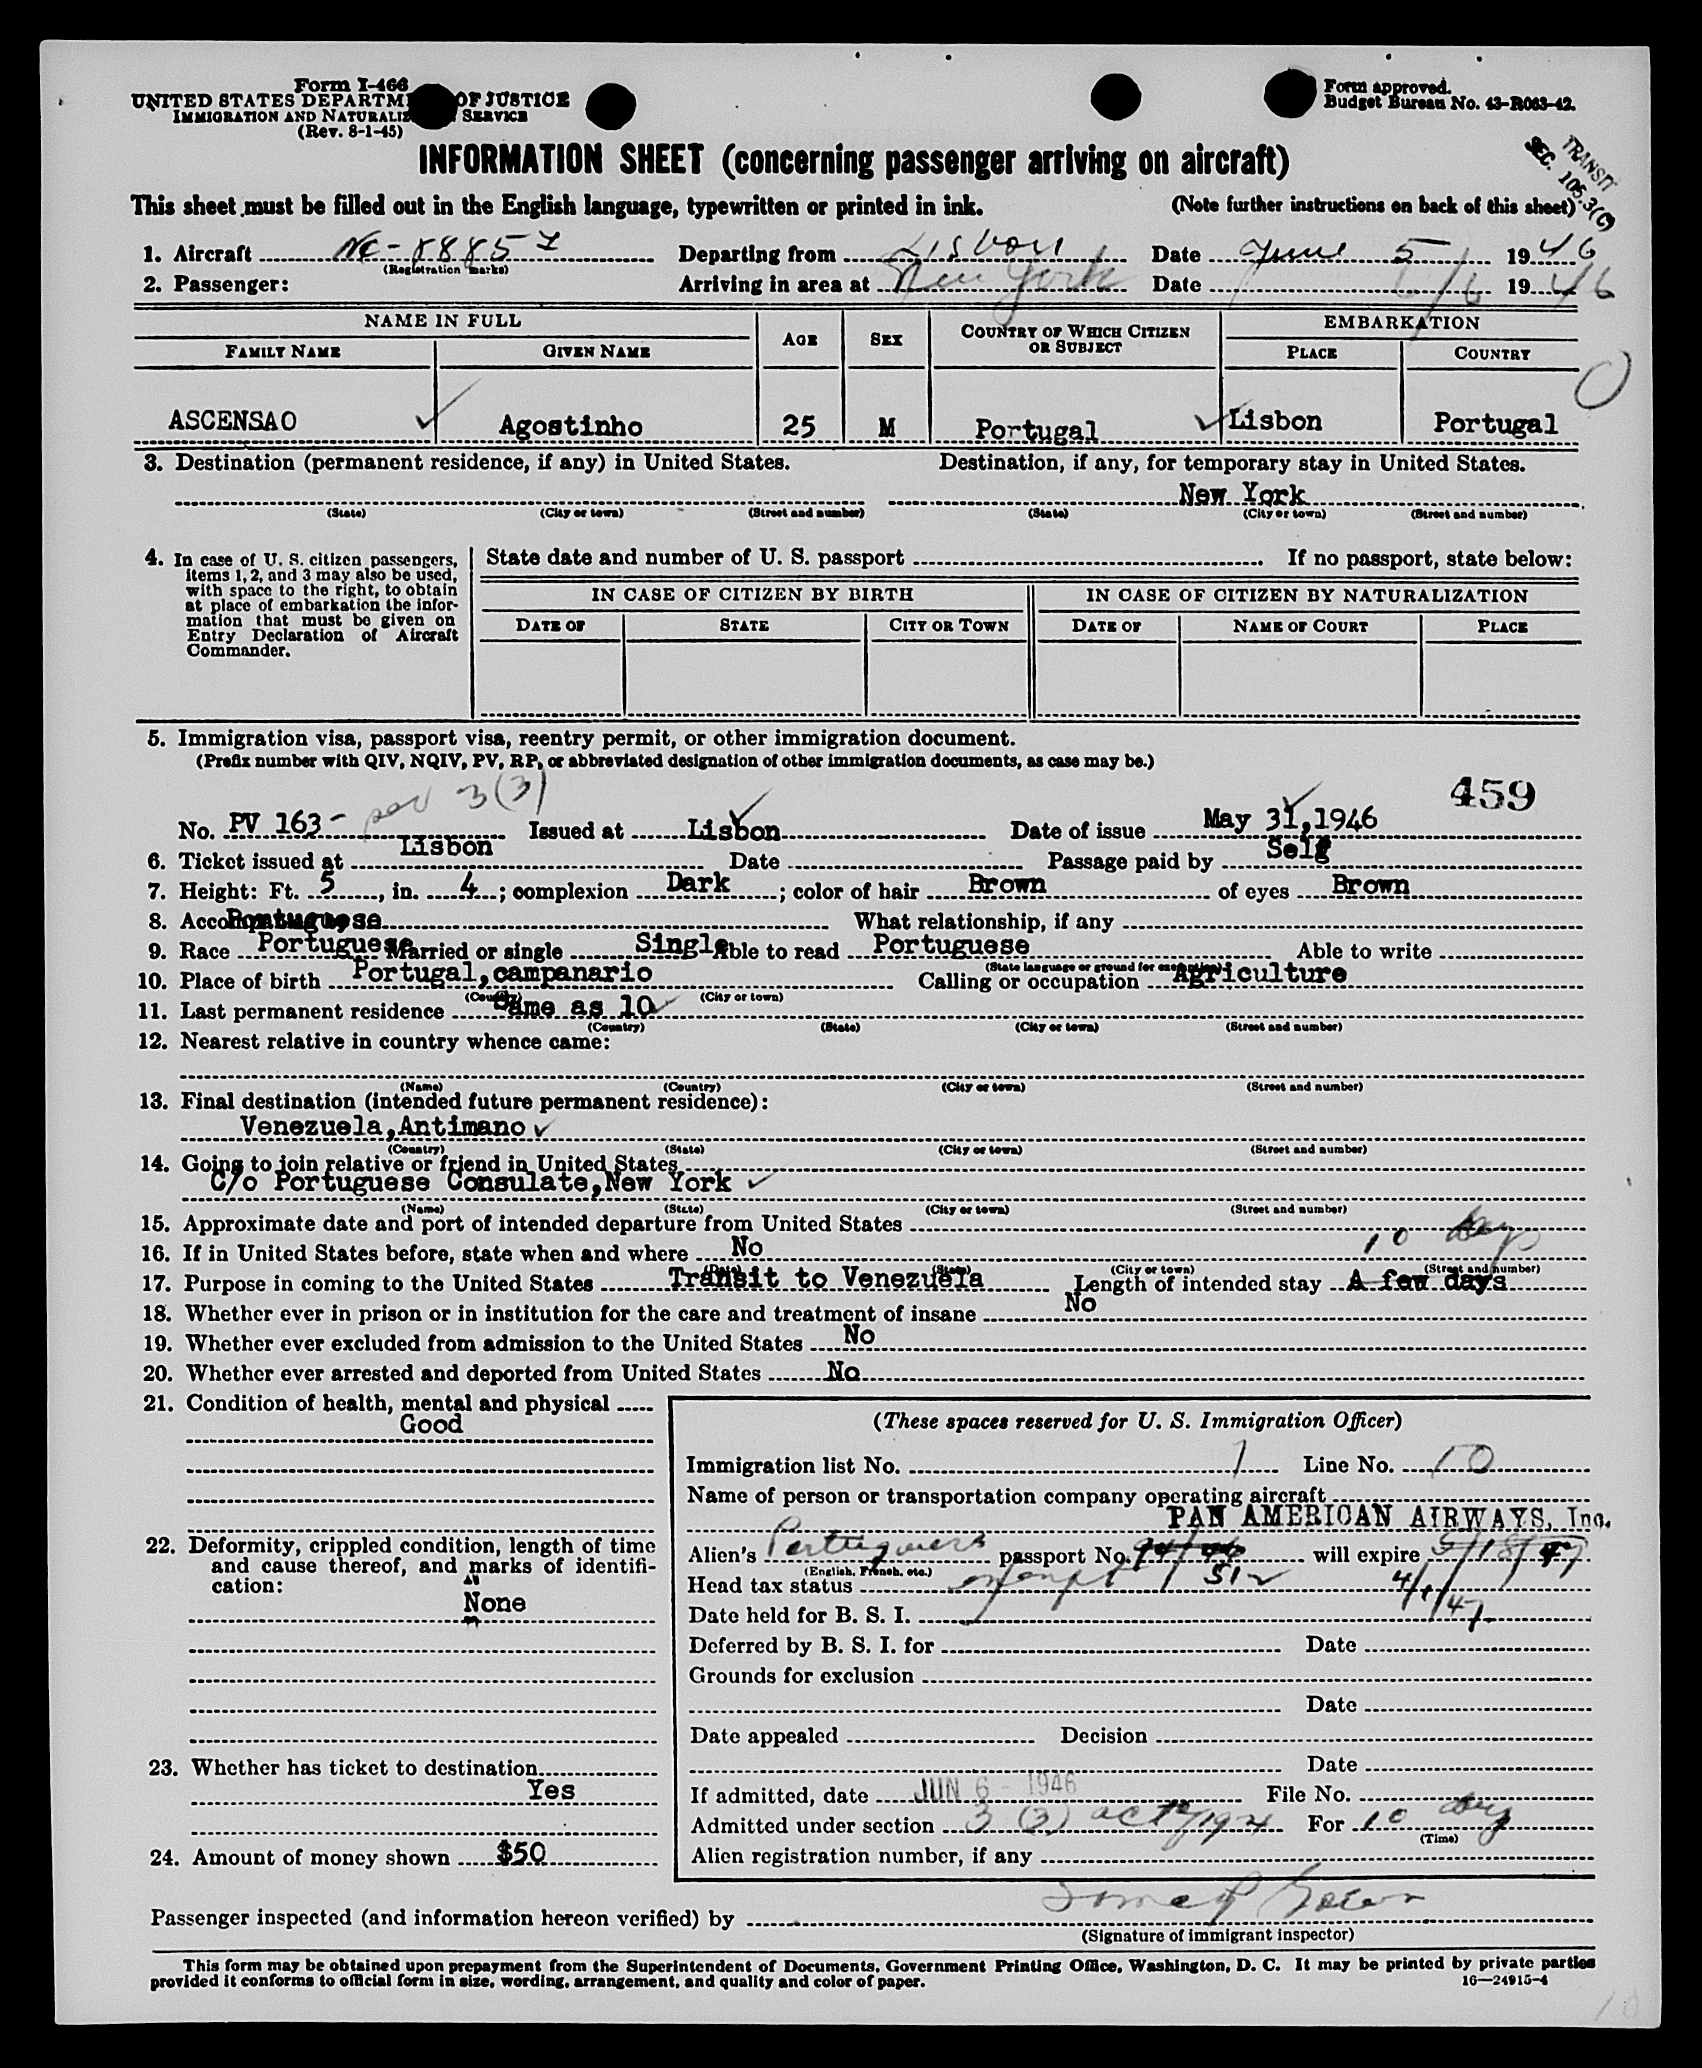 Form I-466
UNITED STATES DEPARTM OF JUSTICE
IMMIGRATION AND NATURALIZ SERVICE
(Rev. 8-1-45)
Form approved.
Budget Bureau No. 43-R063-42.
INFORMATION SHEET (concerning passenger arriving on aircraft)
TRANSIT
SEC. 105.3(C)
This sheet must be filled out in the English language, typewritten or printed in ink. (Note further instructions on back of this sheet)
1. Aircraft NC-88857 Departing from Lisbon Date June 5 1946
(Registration marks)
2. Passenger: Arriving in area at New York Date 6/6 1946
NAME IN FULL AGE SEX COUNTRY OF WHICH CITIZEN OR SUBJECT EMBARKATION
FAMILY NAME GIVEN NAME PLACE COUNTRY
ASCENSAO Agostinho 25 M Portugal Lisbon Portugal
3. Destination (permanent residence, if any) in United States. Destination, if any, for temporary stay in United States.
New York
(State) (City or town) (Street and number) (State) (City or town) (Street and number)
4. In case of U. S. citizen passengers, items 1, 2, and 3 may also be used, with space to the right, to obtain at place of embarkation the information that must be given on Entry Declaration of Aircraft Commander.
State date and number of U. S. passport If no passport, state below:
IN CASE OF CITIZEN BY BIRTH IN CASE OF CITIZEN BY NATURALIZATION
DATE OF STATE CITY OR TOWN DATE OF NAME OF COURT PLACE
5. Immigration visa, passport visa, reentry permit, or other immigration document.
(Prefix number with QIV, NQIV, PV, RP, or abbreviated designation of other immigration documents, as case may be.)
459
No. PV 163- 3(3) Issued at Lisbon Date of issue May 31,1946
6. Ticket issued at Lisbon Date Passage paid by Self
7. Height: Ft. 5, in. 4; complexion Dark; color of hair Brown of eyes Brown
8. Accompanied by Portuguese What relationship, if any
9. Race Portuguese Married or single Single Able to read Portuguese Able to write
(State language or ground for exemption)
10. Place of birth Portugal,campanario Calling or occupation Agriculture
(Country) (City or town)
11. Last permanent residence Same as 10
(Country) (State) (City or town) (Street and number)
12. Nearest relative in country whence came:
(Name) (Country) (City or town) (Street and number)
13. Final destination (intended future permanent residence):
Venezuela,Antimano
(Country) (State) (City or town) (Street and number)
14. Going to join relative or friend in United States
C/o Portuguese Consulate,New York
(Name) (State) (City or town) (Street and number)
15. Approximate date and port of intended departure from United States 10 days
16. If in United States before, state when and where No
(Date) (State) (City or town) (Street and number)
17. Purpose in coming to the United States Transit to Venezuela Length of intended stay A few days
18. Whether ever in prison or in institution for the care and treatment of insane No
19. Whether ever excluded from admission to the United States No
20. Whether ever arrested and deported from United States No
21. Condition of health, mental and physical
Good
22. Deformity, crippled condition, length of time and cause thereof, and marks of identification:
None
23. Whether has ticket to destination
Yes
24. Amount of money shown $50
(These spaces reserved for U. S. Immigration Officer)
Immigration list No. 1 Line No. 10
Name of person or transportation company operating aircraft
PAN AMERICAN AIRWAYS, Inc.
Alien's Portuguese passport No. 512 will expire 4/1/47
(English, French, etc.)
Head tax status exempt
Date held for B. S. I.
Deferred by B. S. I. for Date
Grounds for exclusion
Date
Date appealed Decision
Date
If admitted, date JUN 6 - 1946 File No.
Admitted under section 3 (3) act of 1924 For 10 days
(Time)
Alien registration number, if any
Passenger inspected (and information hereon verified) by
(Signature of immigrant inspector)
This form may be obtained upon prepayment from the Superintendent of Documents, Government Printing Office, Washington, D. C. It may be printed by private parties
provided it conforms to official form in size, wording, arrangement, and quality and color of paper. 16—24915-4
10